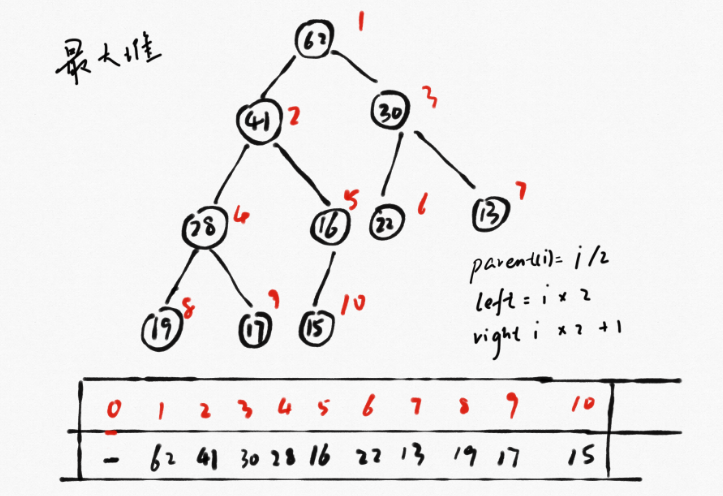 最大堆
62 1
41 2
30 3
28 4
16 5
22 6
13 7
19 8
17 9
15 10
parent(i)= i/2
left = i × 2
right i × 2 + 1
0 1 2 3 4 5 6 7 8 9 10
- 62 41 30 28 16 22 13 19 17 15